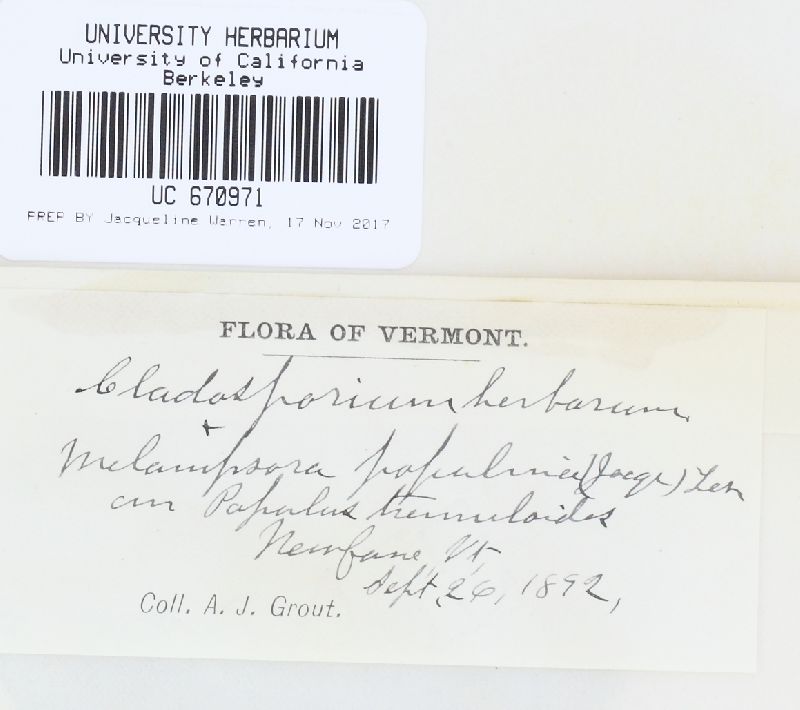 UNIVERSITY HERBARIUM
University of California
Berkeley
UC 670971
PREP BY Jacqueline Warren, 17 Nov 2017
FLORA OF VERMONT.
Cladosporium herbarum
+
Melampsora populnea (Jacq.) Lev
on Populus tremuloides
Newfane, Vt,
Sept, 26, 1892,
Coll. A. J. Grout.